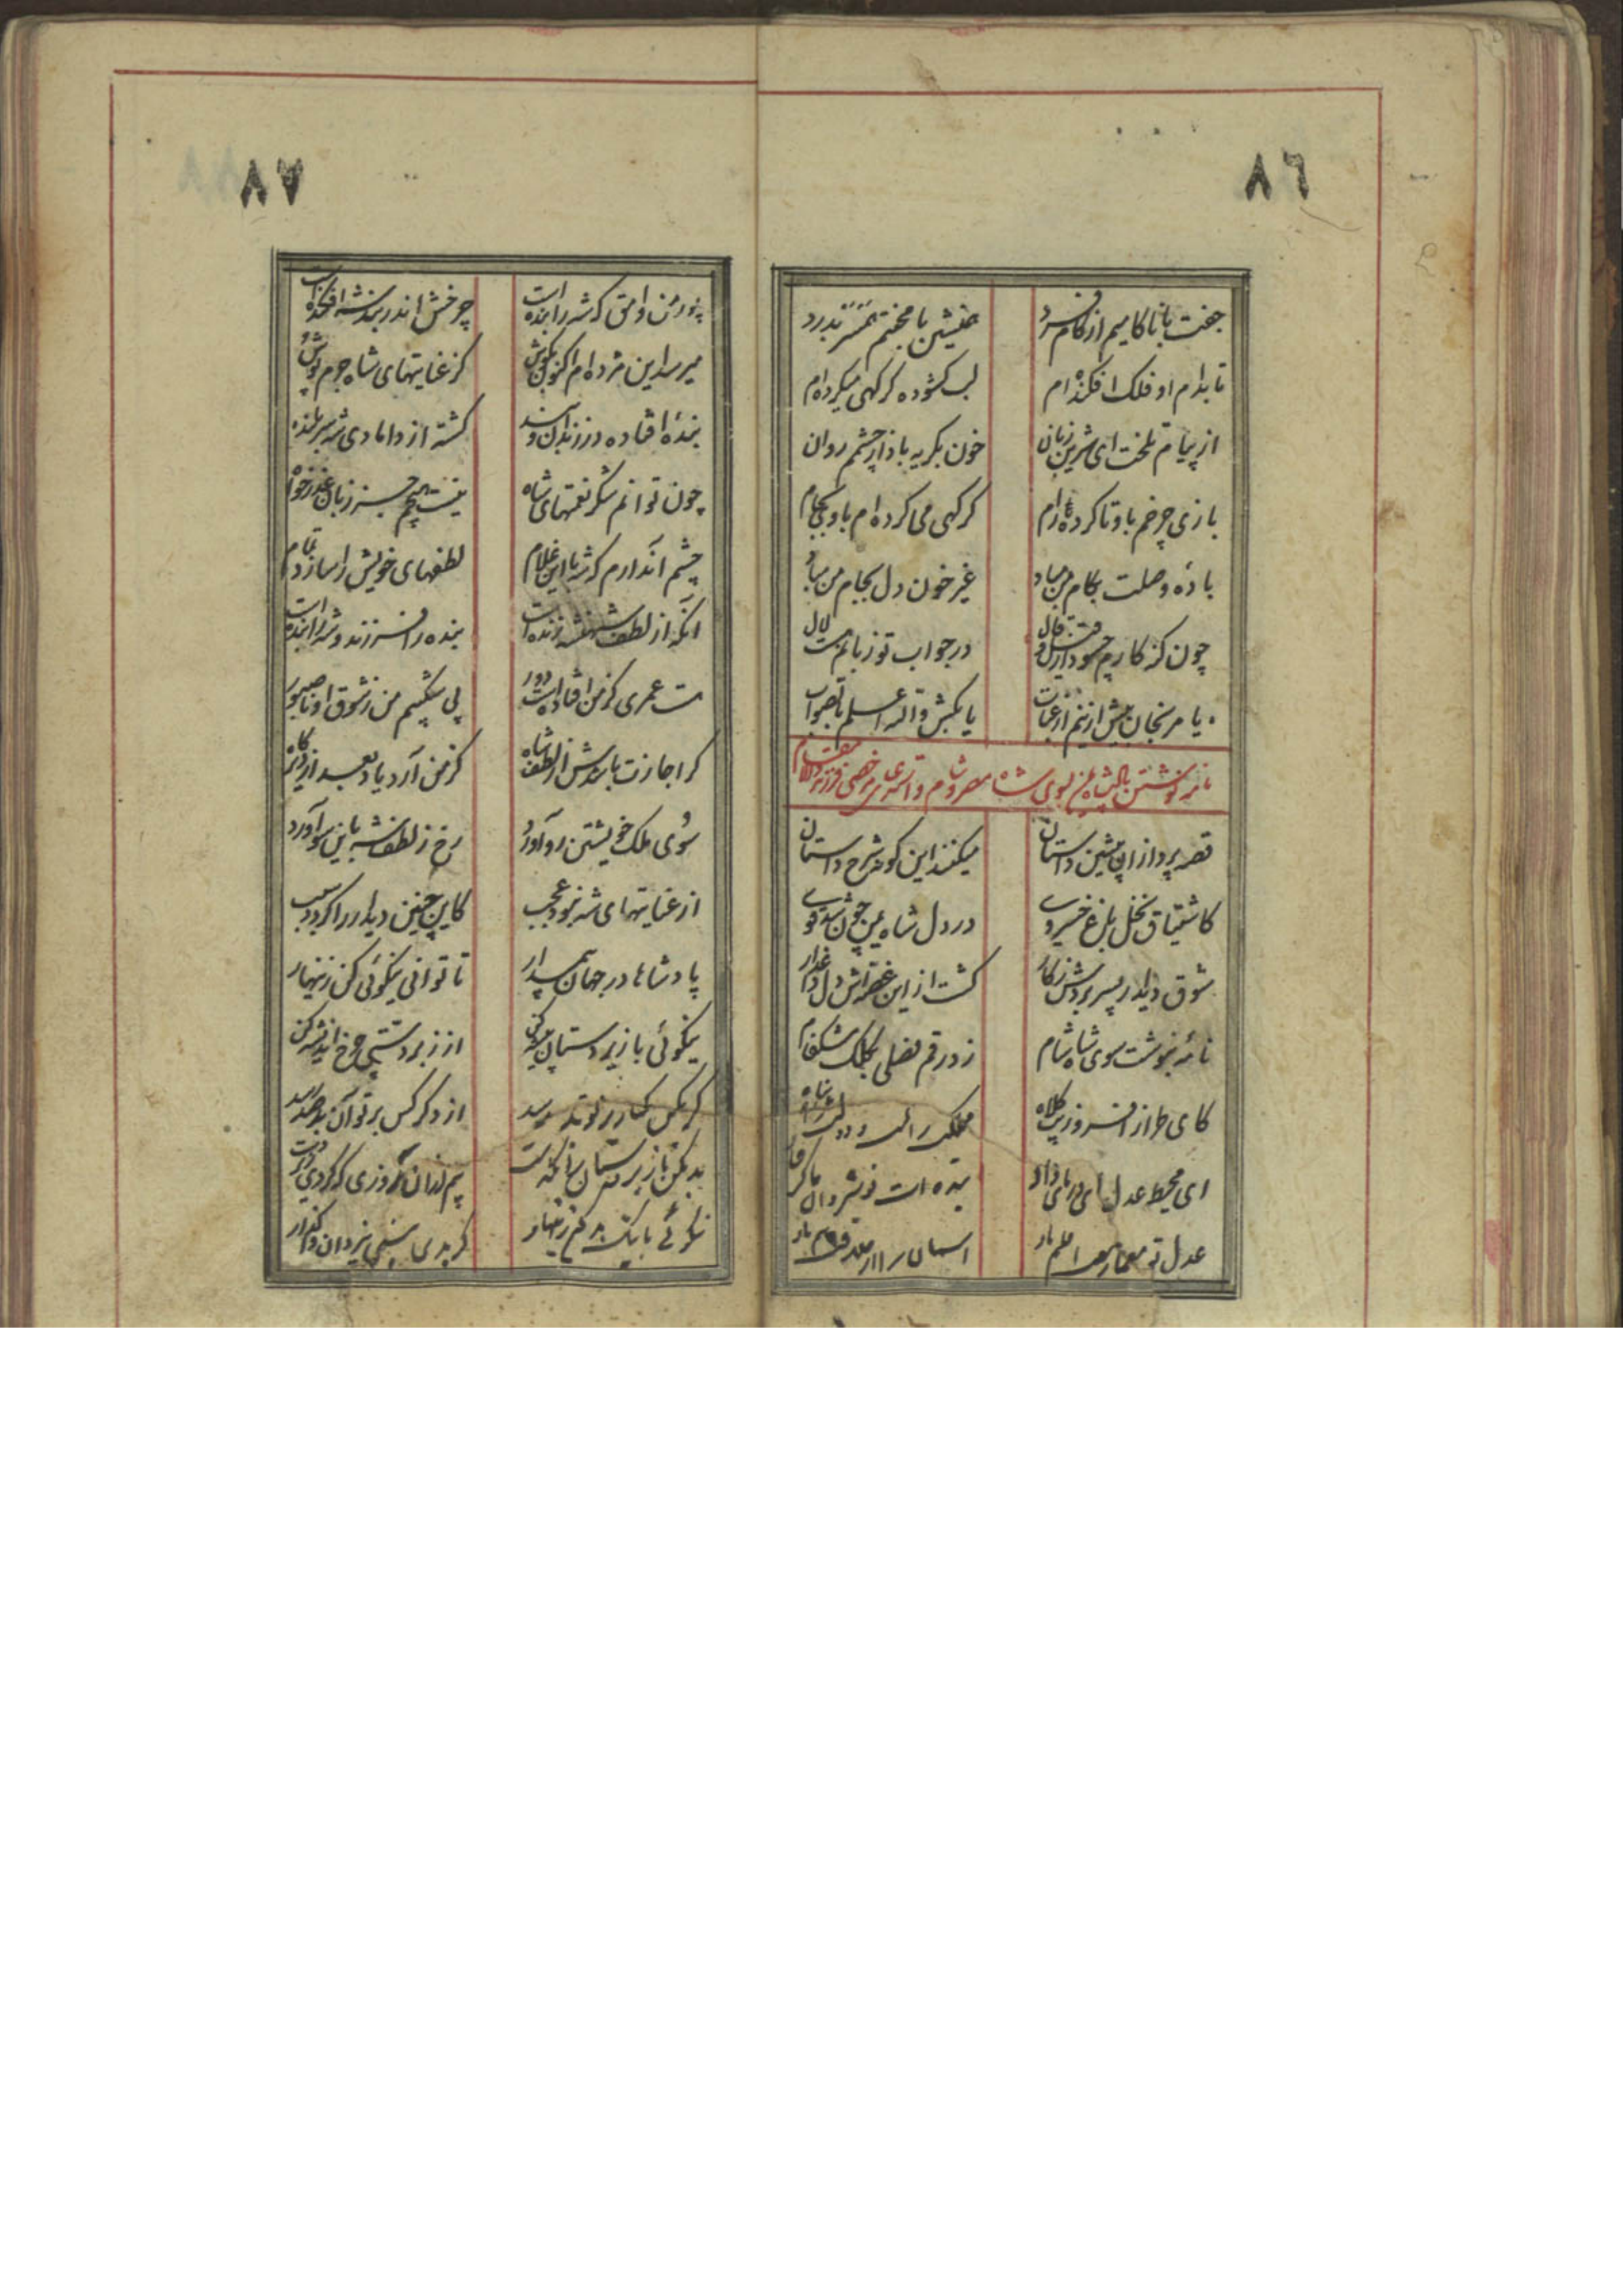 ٨٦
جفت با ناکامیم از کام فرد
همنشین با محنتم همسر بدرد
تا بدام او فلک افکنده ام
لب کشوده کر کهی میکرده ام
از پیام تلخت ای شیرین زبان
خون بکریه بادا از چشمم روان
بازی چرخم باو تا کرده رام
کر کهی می کرده ام با او بجام
باده وصلت بکام من مباد
غیر خون دل بجام من مباد
چون کز کارم
در جواب تو زبانم هست لال
یا مرنجان بیش از ینم از عتاب
یا بکش والله اعلم بالصواب
نامه نوشتن پادشاه یمن بسوی شاه مصر و شام و
قصه پرداز این پیشین داستان
میکند این کونه شرح داستان
کاشتیاق نخل باغ خسروی
در دل شاه یمن چون شد قوی
شوق دیدار پسر بردش ز کار
کشت از این غصه اش دل داغدار
نامه بنوشت سوی شاه شام
زد رقم فصلی بکلک مشکفام
کای طراز افسر و زیب کلاه
مملکت را
ای محیط عدل ای دریای داد
بنده ات نوشیروان
عدل تو معمار
آسمان را از
٨٧
پور من وامق که شه را بنده است
چرخش اندر بند شه افکنده است
میرسد این مژده ام اکنون بکوش
کز عنایتهای شاه جرم پوش
بندهٔ افتاده در زندان و بند
کشته از دامادی شه سر بلند
چون توانم شکر نعمتهای شاه
نیست هیچم جز زبان عذر خواه
چشم آندارم که شه با این غلام
لطفهای خویش را سازد تمام
آنکه از لطف شهنشه زنده است
بنده را فرزند و شه را بنده است
هست عمری کز من افتاده است دور
بی شکیبم من ز شوق او ناصبور
کر اجازت باشدش از لطف شاه
کز من آرد یاد بعد از
سوی ملک خویشتن رو آورد
رخ ز لطف شه باین سو آورد
از عنایتهای شه نبود عجب
کاین چنین دیدار را کردد سبب
پادشاها در جهان
تا توانی نیکوئی کن زینهار
نیکوئی با زیر دستان پیشه کن
از زبردستی چرخ اندیشه کن
کر بکس
از دکر کس بر تو آن بد میرسد
بد مکن با زیر دستان
بیم از آن روزی که کردی زیر دست
نکوئی با نیک بد کن زینهار
کر بدی بینی بیزدان واکذار